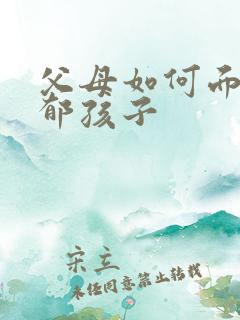 父母如何而
郁孩子
宋立
未经同意禁止转载